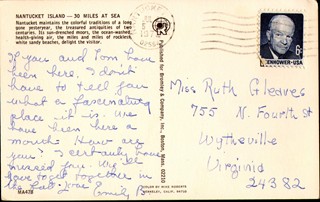 NANTUCKET ISLAND — 30 MILES AT SEA
Nantucket maintains the colorful traditions of a long
gone yesteryear, the treasured antiquities of two
centuries. Its sun-drenched moors, the ocean-washed,
health-giving air, the miles and miles of rocklerk,
white sandy beaches, delight the visitor.
If you and Tom have
been here, I don't
have to tell you
what a fascinating
place it is. We
have been here a
month. How are
you? I certainly have
missed you. We'll
have to get together in
the fall. Love
Emily B.
MA478
Published for Bromley & Company, Inc., Boston, Mass. 02210
COLOR BY MIKE ROBERTS
BERKELEY, CALIF. 94710
6¢
EISENHOWER·USA
Miss Ruth Gleaves
755 N. Fourth St
Wytheville
Virginia
24382